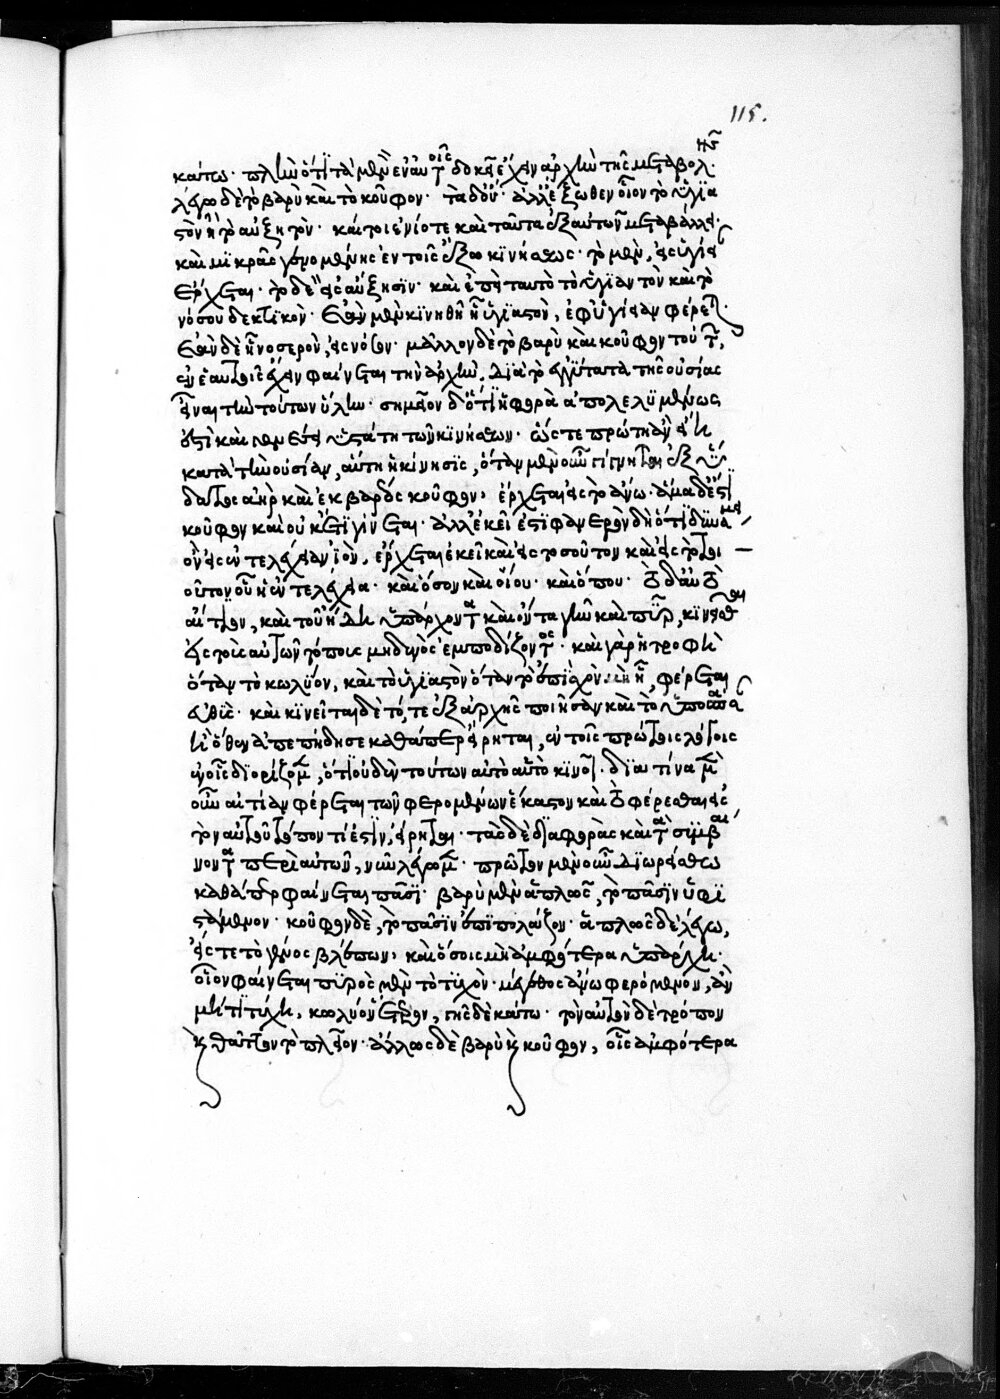 115.
κάτω· πλὴν ὅτι τὰ μὲν ἐν αὑτοῖς δοκεῖ ἔχειν ἀρχὴν τῆς μεταβολῆς·
λέγω δὲ τὸ βαρὺ καὶ τὸ κοῦφον· τὰ δ' οὔ· ἀλλ' ἔξωθεν οἷον τὸ ὑγια
στὸν ἢ τὸ αὐξητόν· καίτοι ἐνίοτε καὶ ταῦτα ἐξ αὑτῶν μεταβάλλει·
καὶ μικρᾶς γενομένης ἐν τοῖς ἔξω κινήσεως· τὸ μὲν, εἰς ὑγίειαν
ἔρχεται· τὸ δὲ εἰς αὔξησιν· καὶ ἐπεὶ ταὐτὸ τὸ ὑγιαντὸν καὶ τὸ
νόσου δεκτικὸν· ἐὰν μὲν κινηθῇ ᾗ ὑγιαστὸν, ἐφ' ὑγίειαν φέρεται·
ἐὰν δὲ ᾗ νοσερὸν, εἰς νόσον· μᾶλλον δὲ τὸ βαρὺ καὶ κοῦφον τούτων,
ἐν ἑαυτοῖς ἔχειν φαίνεται τὴν ἀρχὴν. διὰ τὸ ἐγγύτατα τῆς οὐσίας
εἶναι τὴν τούτων ὕλην· σημεῖον δ' ὅτι ἡ φορὰ ἀπολελυμένων
ἐστὶ καὶ γενέσει ὑστάτη τῶν κινήσεων· ὥστε πρώτη ἂν εἴη
κατὰ τὴν οὐσίαν, αὕτη ἡ κίνησις, ὅταν μὲν οὖν γίγνηται ἐξ ὕ
δατος ἀὴρ καὶ ἐκ βαρέος κοῦφον, ἔρχεται εἰς τὸ ἄνω· ἅμα δ' ἐστὶ
κοῦφον καὶ οὐκέτι γίνεται· ἀλλ' ἐκεῖ ἐστι φανερὸν δὴ ὅτι δυνάμει
ὂν εἰς ἐντελέχειαν ἰὸν, ἔρχεται ἐκεῖ καὶ εἰς τοσοῦτον καὶ εἰς τοι
οῦτον οὗ ἡ ἐντελέχεια· καὶ ὅσου καὶ οἵου· καὶ ὅπου· τὸ δ' αὐτὸ
αἴτιον, καὶ τοῦ ἤδη ὑπάρχοντα καὶ ὄντα γῆν καὶ πῦρ, κινεῖσθαι
εἰς τοὺς αὑτῶν τόπους μηδενὸς ἐμποδίζοντος· καὶ γὰρ ἡ τροφὴ
ὅταν τὸ κωλύον, καὶ τὸ ὑγιαστὸν ὅταν τὸ ἐπίσχον μὴ ᾖ, φέρεται
εὐθὺς· καὶ κινεῖται δὲ τό, τε ἐξ ἀρχῆς ποιῆσαν καὶ τὸ ὑποσπάσαν
ἢ ὅθεν ἀπεπήδησε καθάπερ εἴρηται, ἐν τοῖς πρώτοις λόγοις
ἐν οἷς διορίζομεν, ὅτι οὐδὲν τούτων αὐτὸ αὑτὸ κινεῖ· διὰ τίνα μὲν
οὖν αἰτίαν φέρεται τῶν φερομένων ἕκαστον καὶ τὸ φέρεσθαι εἰς
τὸν αὑτοῦ τόπον τί ἐστιν, εἴρηται· τὰς δὲ διαφορὰς καὶ τὰ συμβαί
νοντα περὶ αὐτῶν, νῦν λέγωμεν· πρῶτον μὲν οὖν διωρίσθω
καθάπερ φαίνεται πᾶσι· βαρὺ μὲν ἁπλῶς, τὸ πᾶσιν ὑφι
στάμενον· κοῦφον δὲ, τὸ πᾶσιν ἐπιπολάζον· ἁπλῶς δὲ λέγω,
εἴς τε τὸ γένος βλέπων, καὶ ὅσοις μὴ ἀμφότερα ὑπάρχει·
οἷον φαίνεται πυρὸς μὲν τὸ τυχὸν· μέγεθος ἄνω φερόμενον, ἂν
μή τι τύχῃ, κωλύον ἕτερον, γῆς δὲ κάτω· τὸν αὐτὸν δὲ τρόπον
καὶ θᾶττον τὸ πλεῖον· ἄλλως δὲ βαρὺ καὶ κοῦφον, οἷς ἀμφότερα